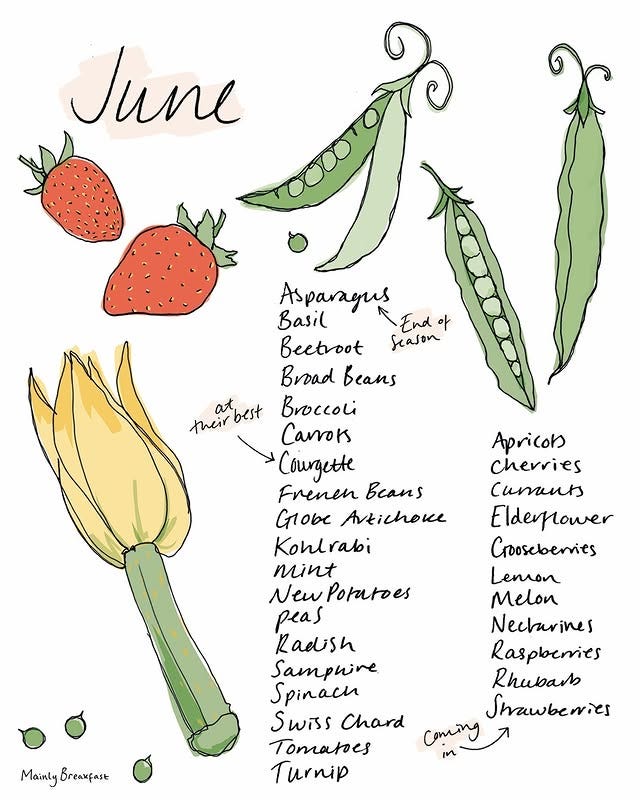 June
Asparagus
End of
season
Basil
Beetroot
Broad Beans
at
their best
Broccoli
Carrots
Courgette
French Beans
Globe Artichoke
Kohlrabi
Mint
New Potatoes
Peas
Radish
Samphire
Spinach
Swiss Chard
Tomatoes
Turnip
Apricots
Cherries
Currants
Elderflower
Gooseberries
Lemon
Melon
Nectarines
Raspberries
Rhubarb
Strawberries
Coming
in
Mainly Breakfast